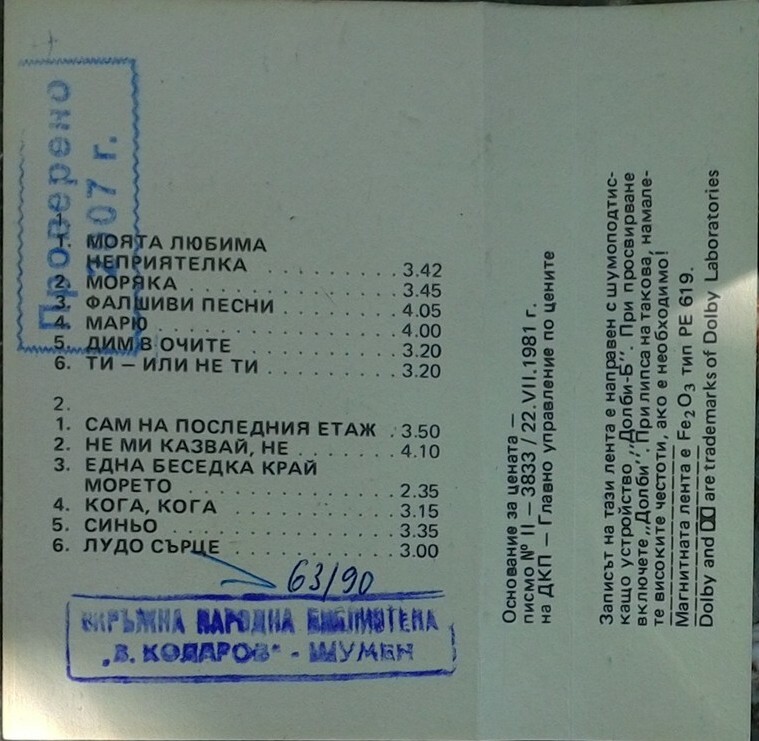 Проверено
2007 г.
1.
1. МОЯТА ЛЮБИМА
НЕПРИЯТЕЛКА . . . . . . . . . . 3.42
2. МОРЯКА . . . . . . . . . . . . . . . 3.45
3. ФАЛШИВИ ПЕСНИ . . . . . . . . 4.05
4. МАРЮ . . . . . . . . . . . . . . . . 4.00
5. ДИМ В ОЧИТЕ . . . . . . . . . . . 3.20
6. ТИ – ИЛИ НЕ ТИ . . . . . . . . . 3.20
2.
1. САМ НА ПОСЛЕДНИЯ ЕТАЖ . 3.50
2. НЕ МИ КАЗВАЙ, НЕ . . . . . . . 4.10
3. ЕДНА БЕСЕДКА КРАЙ
МОРЕТО . . . . . . . . . . . . . . 2.35
4. КОГА, КОГА . . . . . . . . . . . . 3.15
5. СИНЬО . . . . . . . . . . . . . . . 3.35
6. ЛУДО СЪРЦЕ . . . . . . . . . . . 3.00
63/90
ОКРЪЖНА НАРОДНА БИБЛИОТЕКА
„В. КОЛАРОВ" - ШУМЕН
Основание за цената –
писмо № II – 3833 / 22.VII.1981 г.
на ДКП – Главно управление по цените
Записът на тази лента е направен с шумоподтис-
кащо устройство „Долби-Б". При просвирване
включете „Долби". При липса на такова, намале-
те високите честоти, ако е необходимо!
Магнитната лента е Fe2O3 тип PE 619.
Dolby and are trademarks of Dolby Laboratories